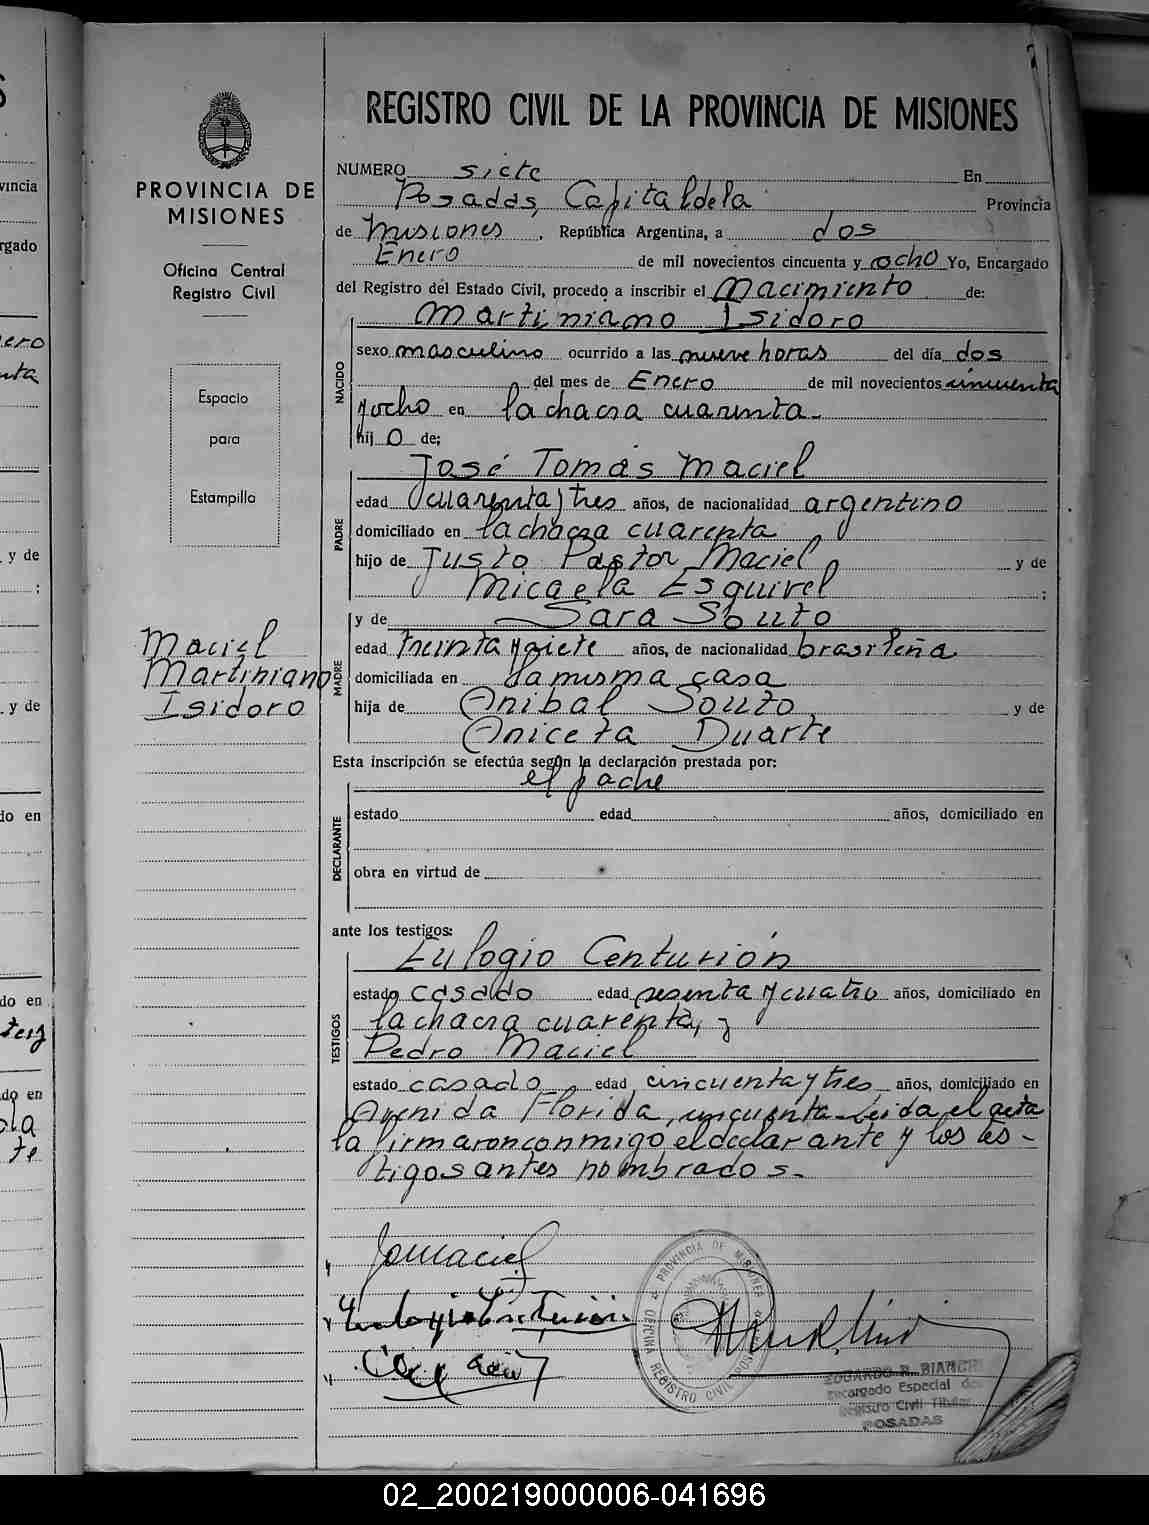 REGISTRO CIVIL DE LA PROVINCIA DE MISIONES
PROVINCIA DE
MISIONES
Oficina Central
Registro Civil
Espacio
para
Estampilla
Maciel
Martiniano
Isidoro
NUMERO siete En
Posadas, Capital de la Provincia
de Misiones. República Argentina, a dos
Enero de mil novecientos cincuenta y ocho Yo, Encargado
del Registro del Estado Civil, procedo a inscribir el Nacimiento de:
NACIDO
Martiniano Isidoro
sexo masculino ocurrido a las nueve horas del día dos
del mes de Enero de mil novecientos cincuenta
y ocho en la chacra cuarenta.
hijo de;
PADRE
José Tomás Maciel
edad cuarenta y tres años, de nacionalidad argentino
domiciliado en la chacra cuarenta
hijo de Justo Pastor Maciel y de
Micaela Esquivel ;
MADRE
y de Sara Souto
edad treinta y siete años, de nacionalidad brasileña
domiciliada en la misma casa
hija de Anibal Souto y de
Aniceta Duarte
Esta inscripción se efectúa según la declaración prestada por:
el padre
DECLARANTE
estado edad años, domiciliado en
obra en virtud de
ante los testigos:
TESTIGOS
Eulogio Centurión
estado casado edad sesenta y cuatro años, domiciliado en
la chacra cuarenta, y
Pedro Maciel
estado casado, edad cincuenta y tres años, domiciliado en
Avenida Florida, cincuenta. Leida el acta
la firmaron conmigo el declarante y los tes-
tigos antes nombrados.
PROVINCIA DE MISIONES
OFICINA REGISTRO CIVIL POSADAS
EDUARDO R. BIANCHI
Encargado Especial del
Registro Civil Titular
POSADAS
vincia
rgado
y de
y de
do en
do en
do en
02_200219000006-041696